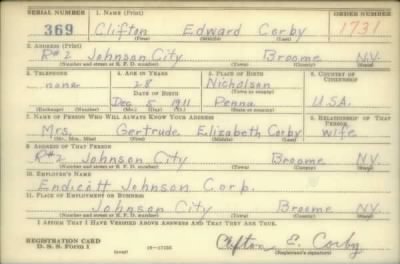 SERIAL NUMBER 1. NAME (Print) ORDER NUMBER
369 Clifton Edward Corby 1731
(First) (Middle) (Last)
2. ADDRESS (Print)
R#2 Johnson City Broome N.Y.
(Number and street or R. F. D. number) (Town) (County) (State)
3. TELEPHONE 4. AGE IN YEARS 5. PLACE OF BIRTH 6. COUNTRY OF CITIZENSHIP
none 28 Nicholson
DATE OF BIRTH (Town or county)
Dec 5 1911 Penna U.S.A.
(Exchange) (Number) (Mo.) (Day) (Yr.) (State or country)
7. NAME OF PERSON WHO WILL ALWAYS KNOW YOUR ADDRESS 8. RELATIONSHIP OF THAT PERSON
Mrs. Gertrude Elizabeth Corby wife
(Mr., Mrs., Miss) (First) (Middle) (Last)
9. ADDRESS OF THAT PERSON
R#2 Johnson City Broome N.Y.
(Number and street or R. F. D. number) (Town) (County) (State)
10. EMPLOYER'S NAME
Endicott Johnson Corp.
11. PLACE OF EMPLOYMENT OR BUSINESS
Johnson City Broome N.Y.
(Number and street or R. F. D. number) (Town) (County) (State)
I AFFIRM THAT I HAVE VERIFIED ABOVE ANSWERS AND THAT THEY ARE TRUE.
REGISTRATION CARD Clifton E. Corby
D. S. S. Form 1 (over) 16—17105 (Registrant's signature)